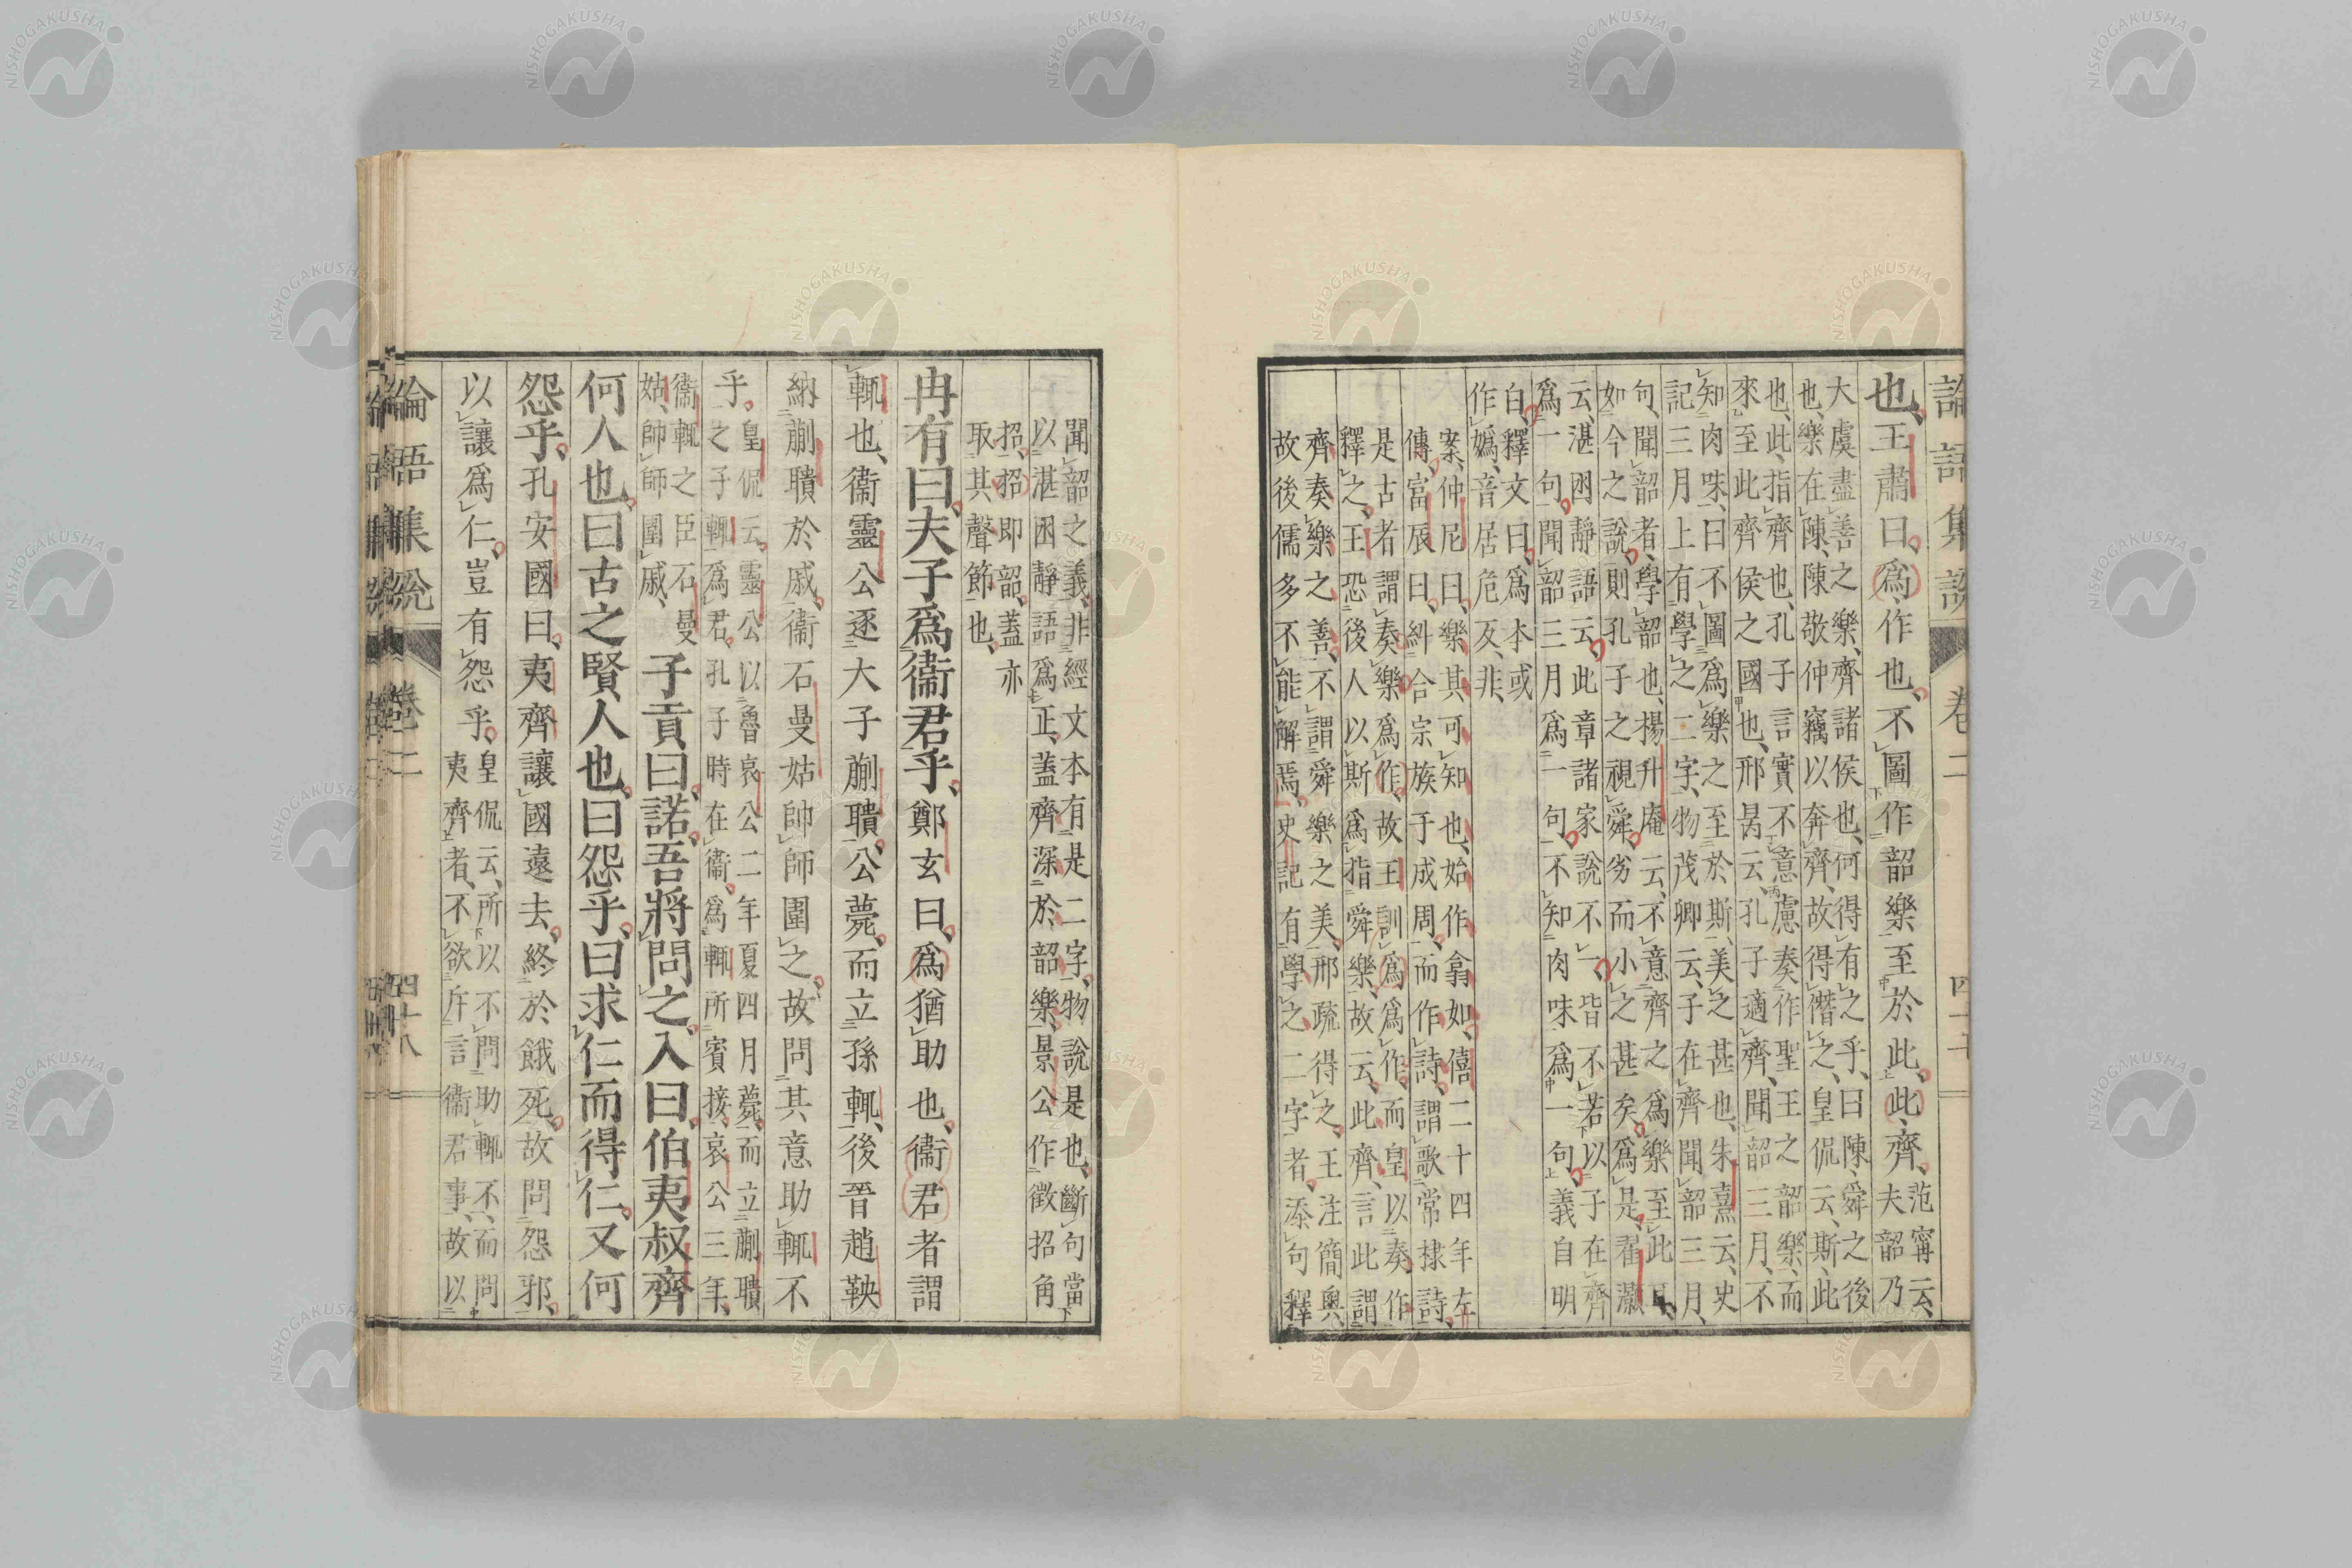 論語集說 卷二
也、王肅曰、爲、作也、不圖作韶樂至於此、此、齊、范甯云、
夫韶乃
大虞盡善之樂、齊諸侯也、何得有之乎、曰陳、舜之後
也、樂在陳、陳敬仲竊以奔齊、故得僭之、皇侃云、斯、此
也、此指齊也、孔子言實不意慮奏作聖王之韶樂、而
來至此齊侯之國也、邢昺云、孔子適齊、聞韶三月、不
知肉味、曰不圖爲樂之至於斯、美之甚也、朱熹云、史
記三月上有學之二字、物茂卿云、子在齊聞韶三月、
句、聞韶者、學韶也、揚升庵云、不意齊之爲樂至此
如今之說、則孔子之視舜、劣而小之甚矣、爲是、翟灝
云、湛囦靜語云、此章諸家說不一、皆不若以子在齊
爲一句、聞韶三月爲一句、不知肉味爲一句、義自明
白、釋文曰、爲本或
作嬀、音居危反、非、
案、仲尼曰、樂其可知也、始作翕如、僖二十四年左
傳、富辰曰、糾合宗族于成周、而作詩、謂歌常棣詩、
是古者謂奏樂爲作、故王訓爲爲作、而皇以奏作
釋之、王恐後人以斯爲指舜樂、故云、此齊、言此謂
齊奏樂之善、不謂舜樂之美、邢疏得之、王注簡奧、
故後儒多不能解焉、史記有學之二字者、添句釋
聞韶之義、非經文本有是二字、物說是也、斷句當
以湛囦靜語爲正、蓋齊深於韶樂、景公作徵招角
招、招即韶、蓋亦
取其聲節也、
冉有曰、夫子爲衞君乎、鄭玄曰、爲猶助也、衞君者謂
輒也、衞靈公逐大子蒯聵、公薨、而立孫輒、後晉趙鞅
納蒯聵於戚、衞石曼姑帥師圍之、故問其意助輒不
乎、皇侃云、靈公以魯哀公二年夏四月薨、而立蒯聵
之子輒爲君、孔子時在衞、爲輒所賓接、哀公三年、
衞輒之臣石曼
姑、帥師圍戚、
子貢曰、諾、吾將問之、入曰、伯夷叔齊
何人也、曰古之賢人也、曰怨乎、曰求仁而得仁、又何
怨乎、孔安國曰、夷齊讓國遠去、終於餓死、故問怨邪、
以讓爲仁、豈有怨乎、皇侃云、所以不問助輒不、而問
夷齊者、不欲斥言衞君事、故以
論語集說 卷二 四十八